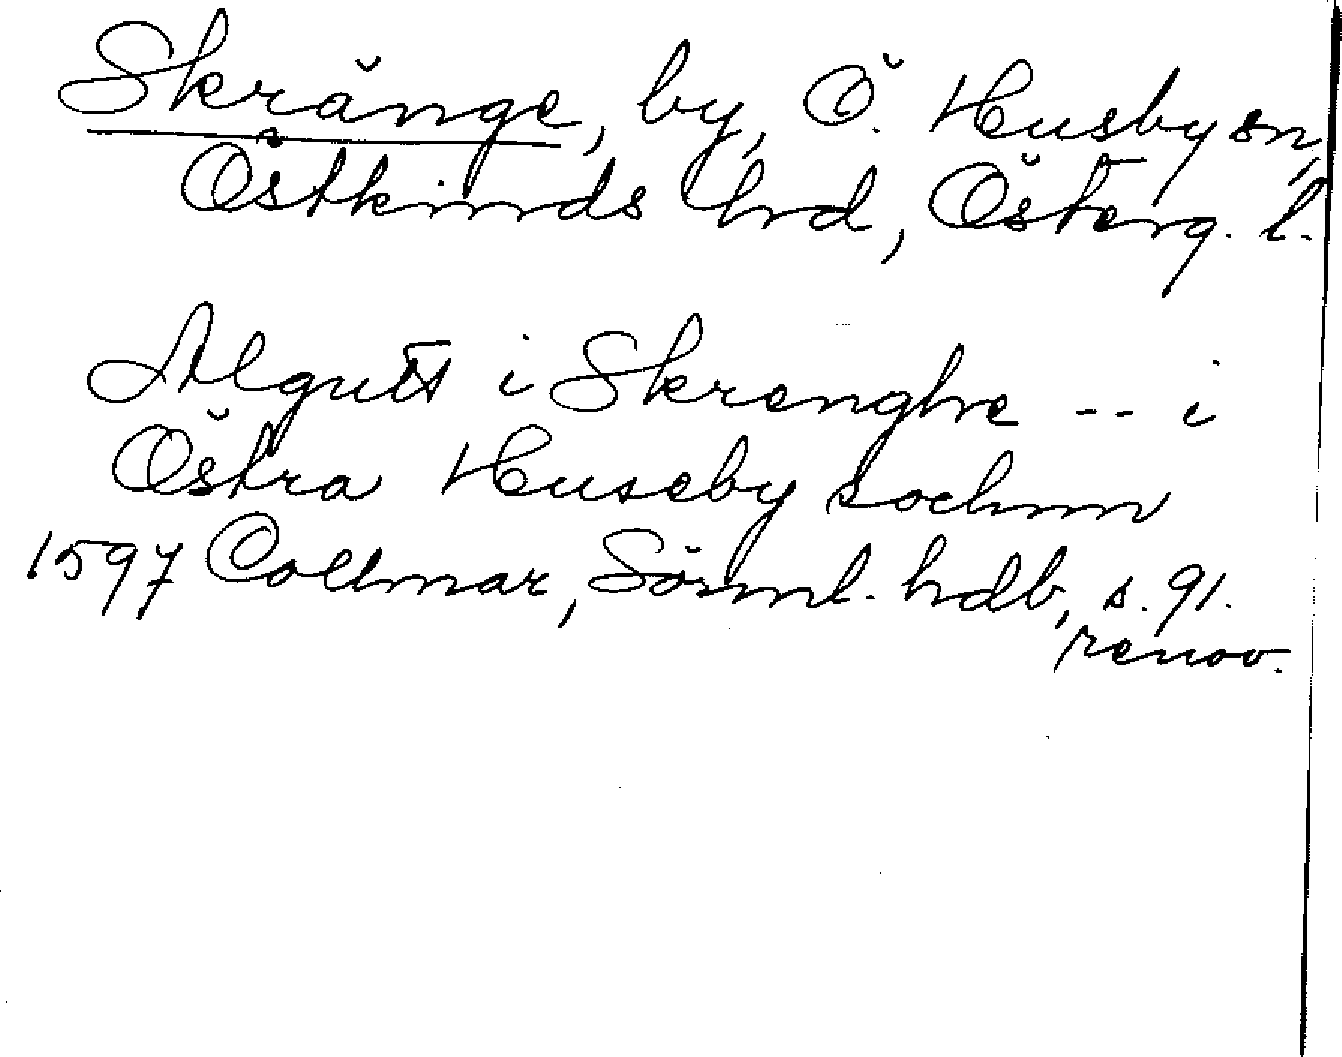 Skränge, by, Ö. Husby sn,
Östkinds hrd, Österg. l.
Algutt i Skrenghe -- i
Östra Huseby sochnn
1597 Collmar, Sörml. hdb, s. 91.
renov.